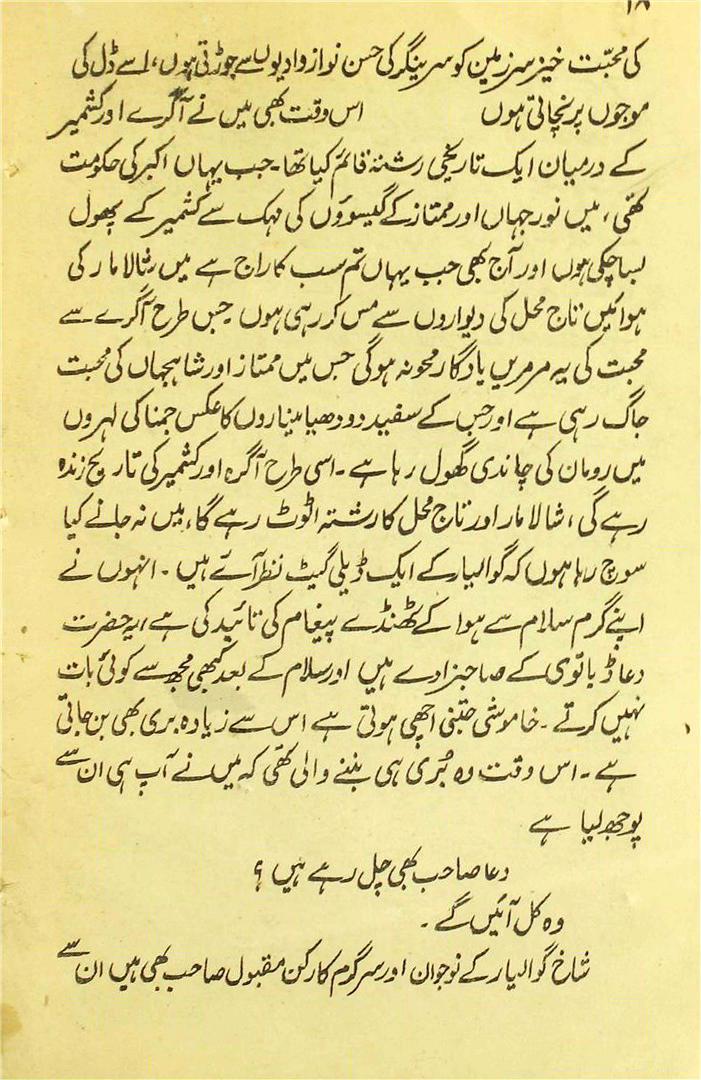 ۱۸
کی محبّت خیز سرزمین کو سرینگر کی حسن نواز وادیوں سے جوڑتی ہوں، اسے ڈل کی
موجوں پر نچاتی ہوں اس وقت بھی میں نے آگرے اور کشمیر
کے درمیان ایک تاریخی رشتہ قائم کیا تھا۔ جب یہاں اکبر کی حکومت
تھی، میں نور جہاں اور ممتاز کے گیسوؤں کی مہک سے کشمیر کے پھول
بسا چکی ہوں اور آج بھی جب یہاں تم سب کا راج ہے میں شالامار کی
ہوائیں تاج محل کی دیواروں سے مس کر رہی ہوں جس طرح آگرے سے
محبت کی یہ مرمریں یادگار محو نہ ہوگی جس میں ممتاز اور شاہجہاں کی محبت
جاگ رہی ہے اور جس کے سفید دودھیا میناروں کا عکس جمنا کی لہروں
میں رومان کی چاندی گھول رہا ہے۔ اسی طرح آگرہ اور کشمیر کی تاریخ زندہ
رہے گی، شالامار اور تاج محل کا رشتہ اٹوٹ رہے گا، میں نہ جانے کیا
سوچ رہا ہوں کہ گوالیار کے ایک ڈیلی گیٹ نظر آتے ہیں۔ انہوں نے
اپنے گرم سلام سے ہوا کے ٹھنڈے پیغام کی تائید کی ہے، یہ حضرت
دعا ڈبائوی کے صاحبزادے ہیں اور سلام کے بعد کبھی مجھ سے کوئی بات
نہیں کرتے۔ خاموشی جتنی اچھی ہوتی ہے اس سے زیادہ بری بھی بن جاتی
ہے۔ اس وقت وہ بُری ہی بننے والی تھی کہ میں نے آپ ہی ان سے
پوچھ لیا ہے
دعا صاحب بھی چل رہے ہیں ؟
وہ کل آئیں گے۔
شاخ گوالیار کے نوجوان اور سرگرم کارکن مقبول صاحب بھی ہیں ان سے